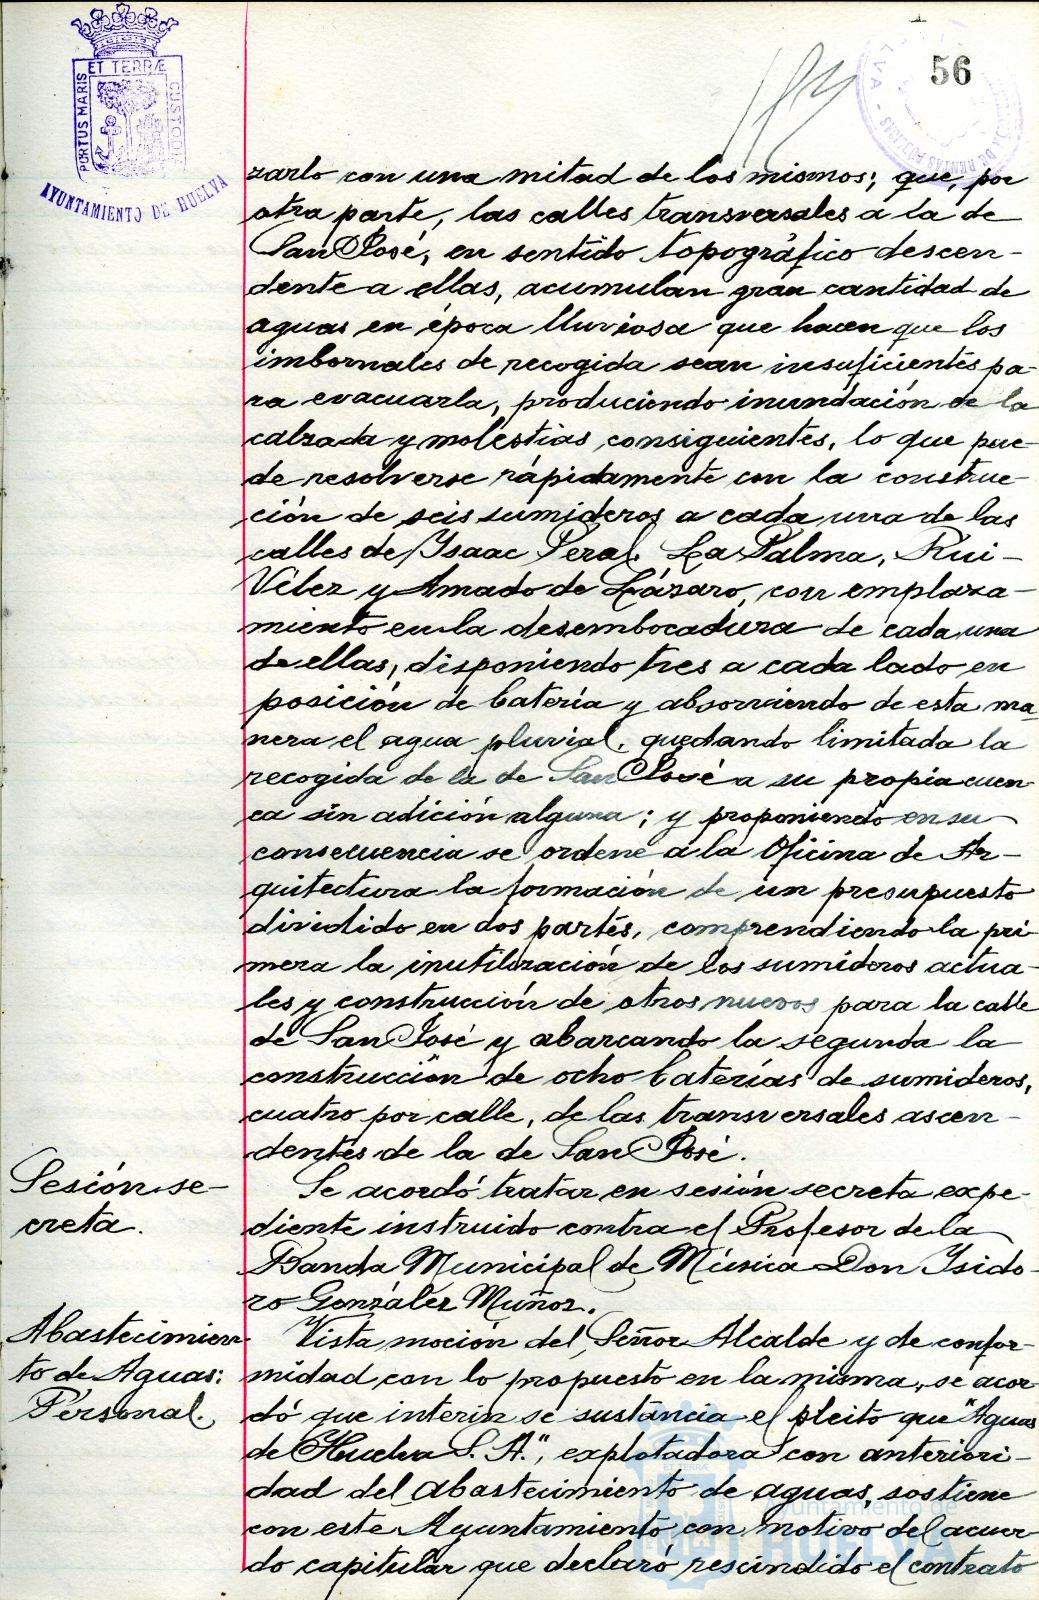 ET TERRÆ
PORTUS MARIS
CUSTODIA
AYUNTAMIENTO DE HUELVA
56
zarlo con una mitad de los mismos; que, por
otra parte, las calles transversales a la de
San José, en sentido topográfico descen-
dente a ellas, acumulan gran cantidad de
aguas en época lluviosa que hacen que los
imbornales de recogida sean insuficientes pa-
ra evacuarla, produciendo inundación de la
calzada y molestias consiguientes, lo que pue-
de resolverse rápidamente con la construc-
ción de seis sumideros a cada una de las
calles de Isaac Peral, La Palma, Rui-
Vélez y Amado de Lázaro, con emplaza-
miento en la desembocadura de cada una
de ellas, disponiendo tres a cada lado en
posición de batería y absorviendo de esta ma-
nera el agua pluvial, quedando limitada la
recogida de la de San José a su propia cuen-
ca sin adición alguna; y proponiendo en su
consecuencia se ordene a la Oficina de Ar-
quitectura la formación de un presupuesto
dividido en dos partes, comprendiendo la pri-
mera la inutilización de los sumideros actua-
les y construcción de otros nuevos para la calle
de San José y abarcando la segunda la
construcción de ocho baterías de sumideros,
cuatro por calle, de las transversales ascen-
dentes de la de San José.
Sesión se-
creta.
Se acordó tratar en sesión secreta expe-
diente instruido contra el Profesor de la
Banda Municipal de Música Don Isido-
ro González Muñoz.
Abastecimien-
to de Aguas:
Personal.
Vista moción del Señor Alcalde y de confor-
midad con lo propuesto en la misma, se acor-
dó que interin se sustancia el pleito que "Aguas
de Huelva S. A.", explotadora con anteriori-
dad del abastecimiento de aguas, sostiene
con este Ayuntamiento con motivo del acuer-
do capitular que declaró rescindido el contrato
Ayuntamiento de
HUELVA